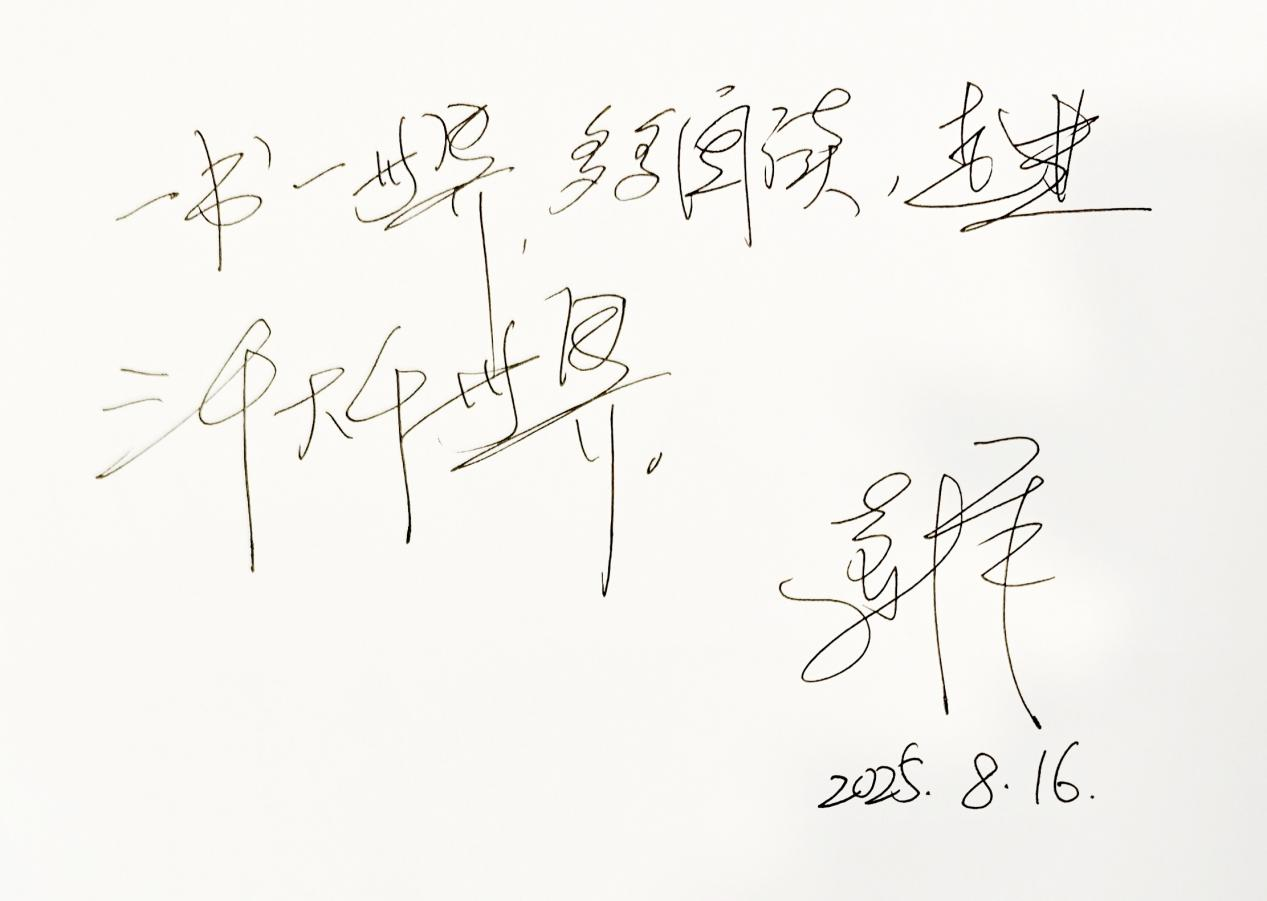 一书一世界，多多阅读，走进
三千大千世界。
2025.8.16.